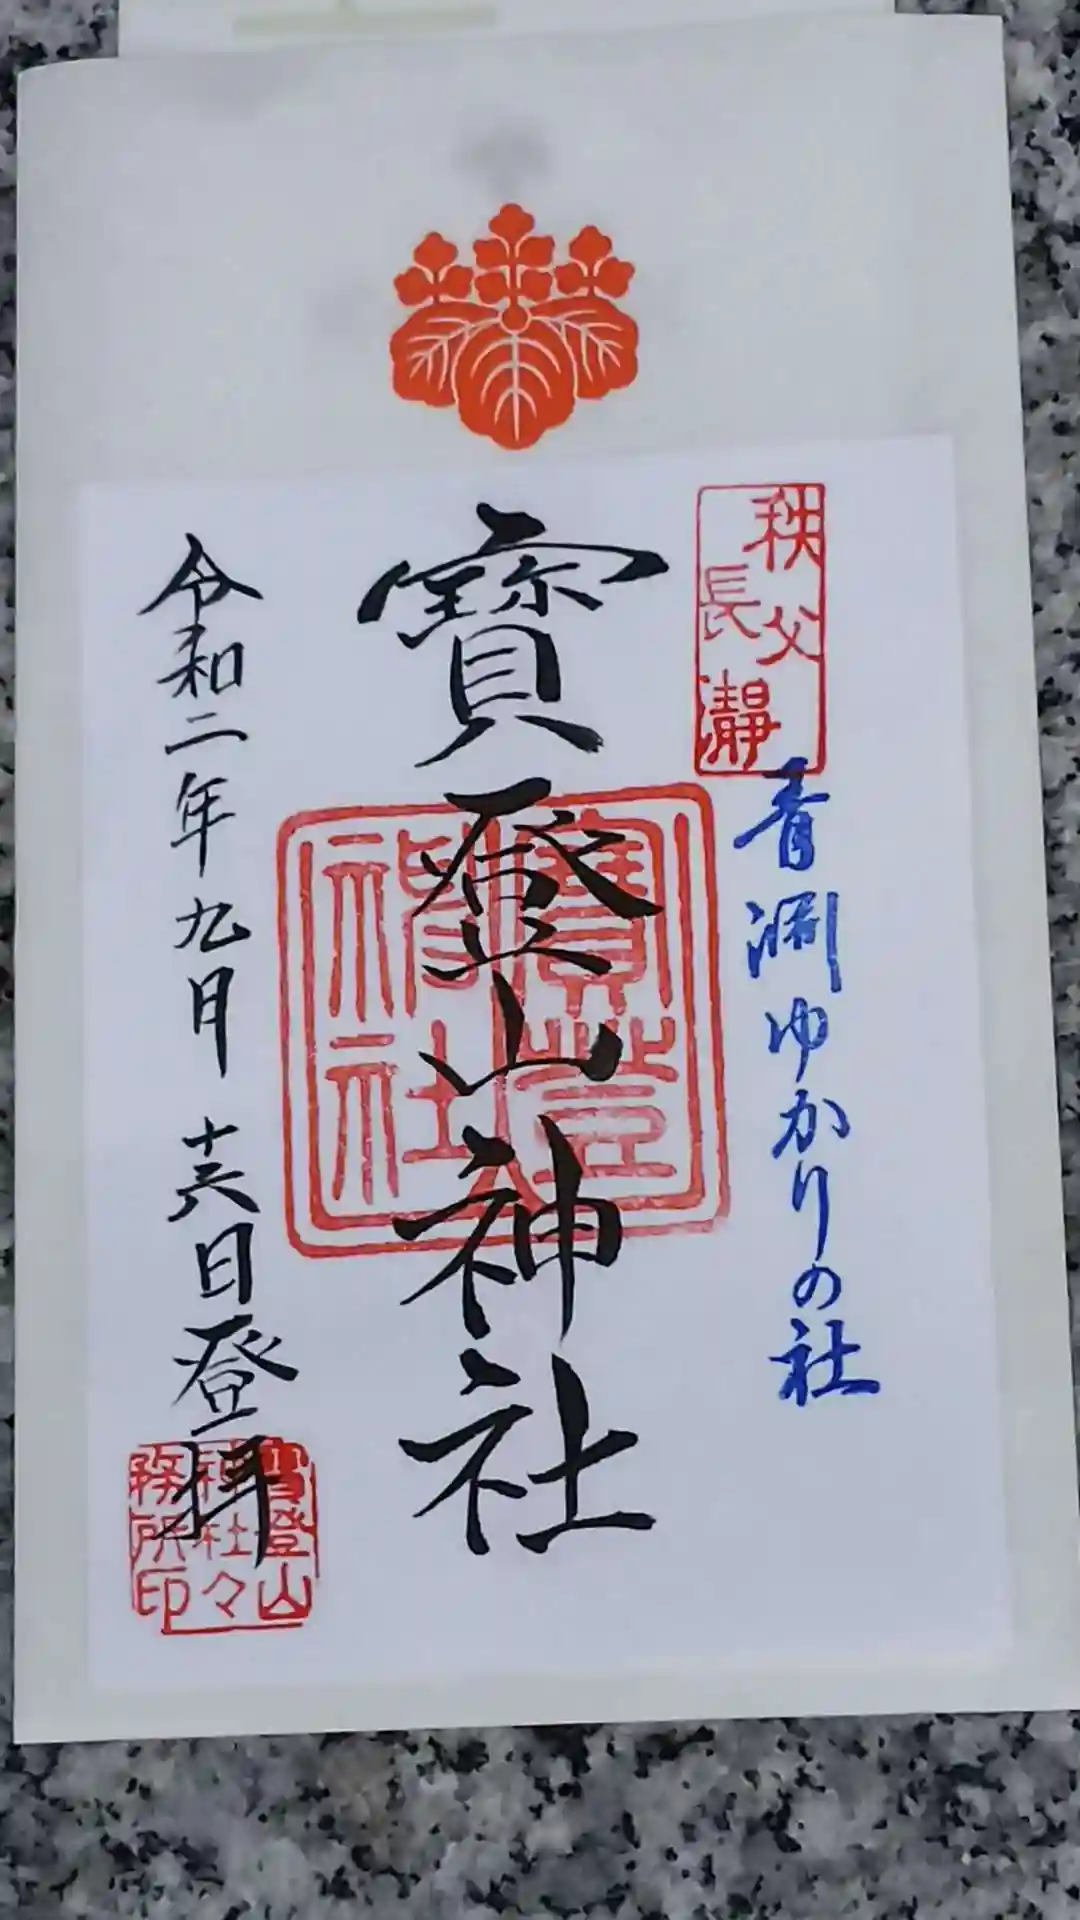 秩父
長瀞
青淵ゆかりの社
寳登山神社
寶登山
神社
令和二年九月十六日登拝
寶登山
神社々
務所印